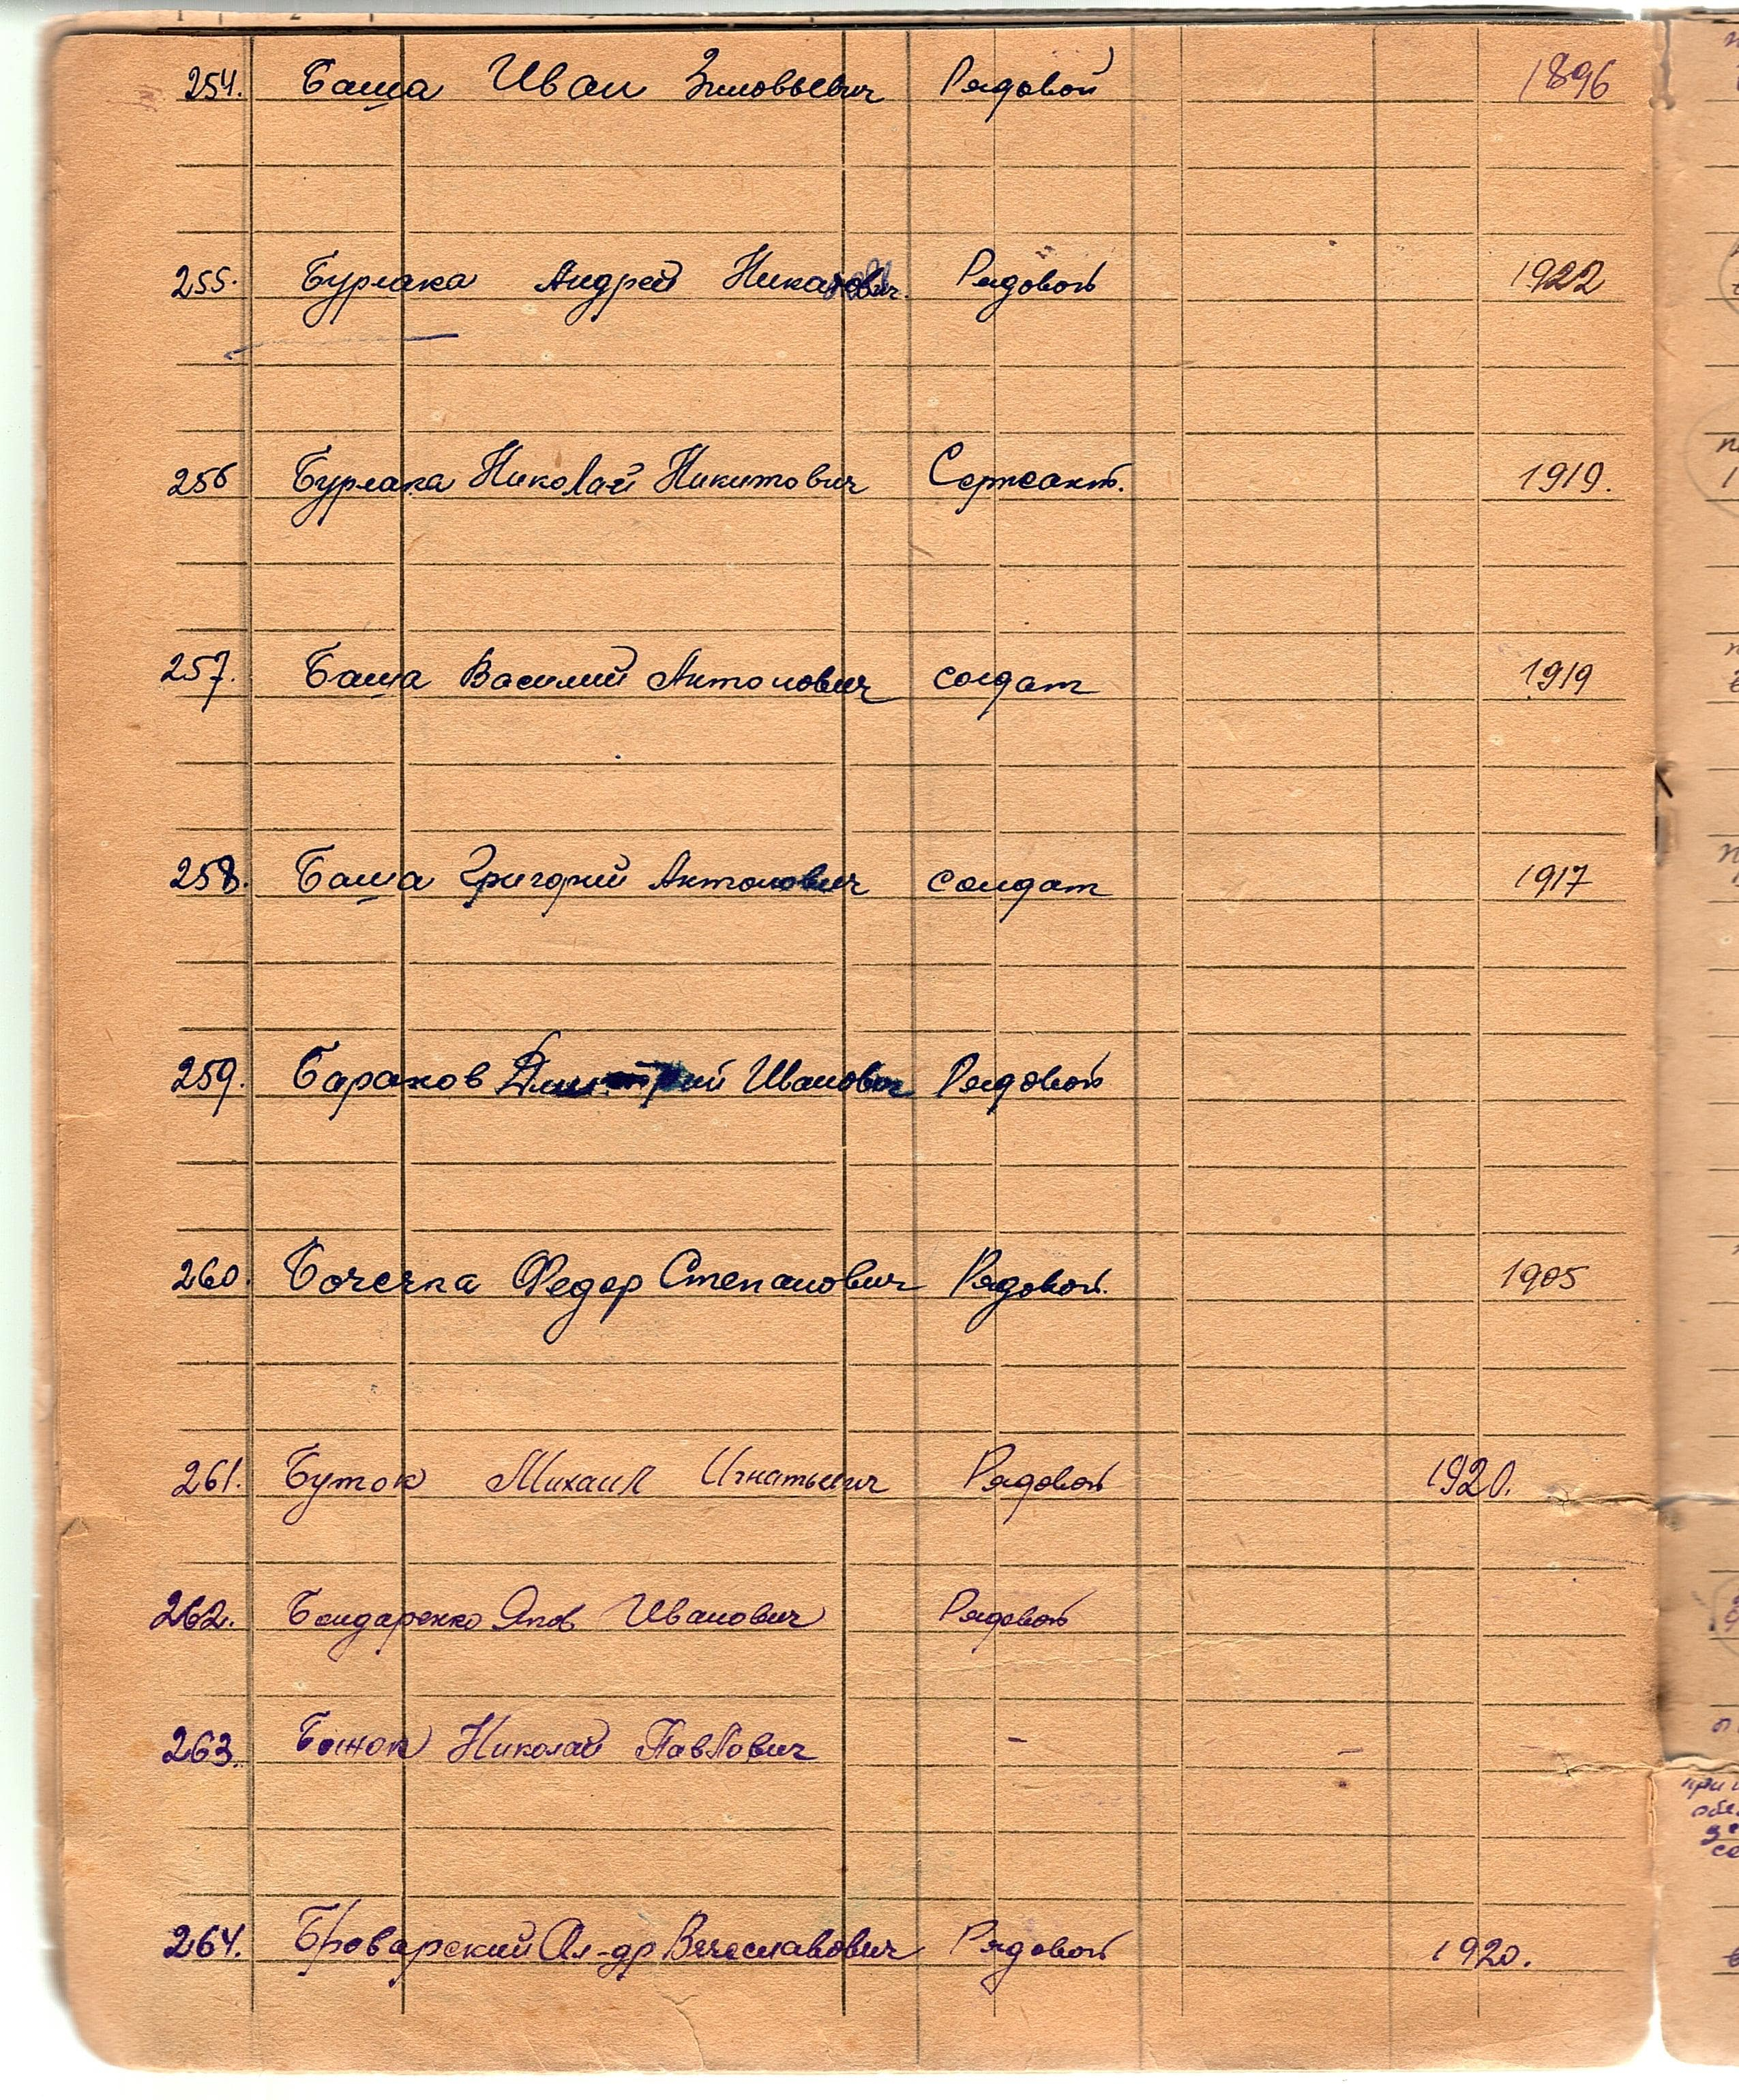 254. Баша Иван Зиновьевич Рядовой 1896
255. Бурлака Андрей Рядовой 1922
256 Бурлака Николай Никитович Сержант. 1919.
257. Баша Василий Антонович солдат 1919
258. Баша Григорий Антонович солдат 1917
259. Баранов Дмитрий Иванович Рядовой
260. Бочечка Федор Степанович Рядовой. 1905
261. Буток Михаил Игнатьевич Рядовой 1920.
262. Бондаренко Яков Иванович Рядовой
263. Божок Николай Павлович - -
264. Броварский Ал-др Вячеславович Рядовой 1920.